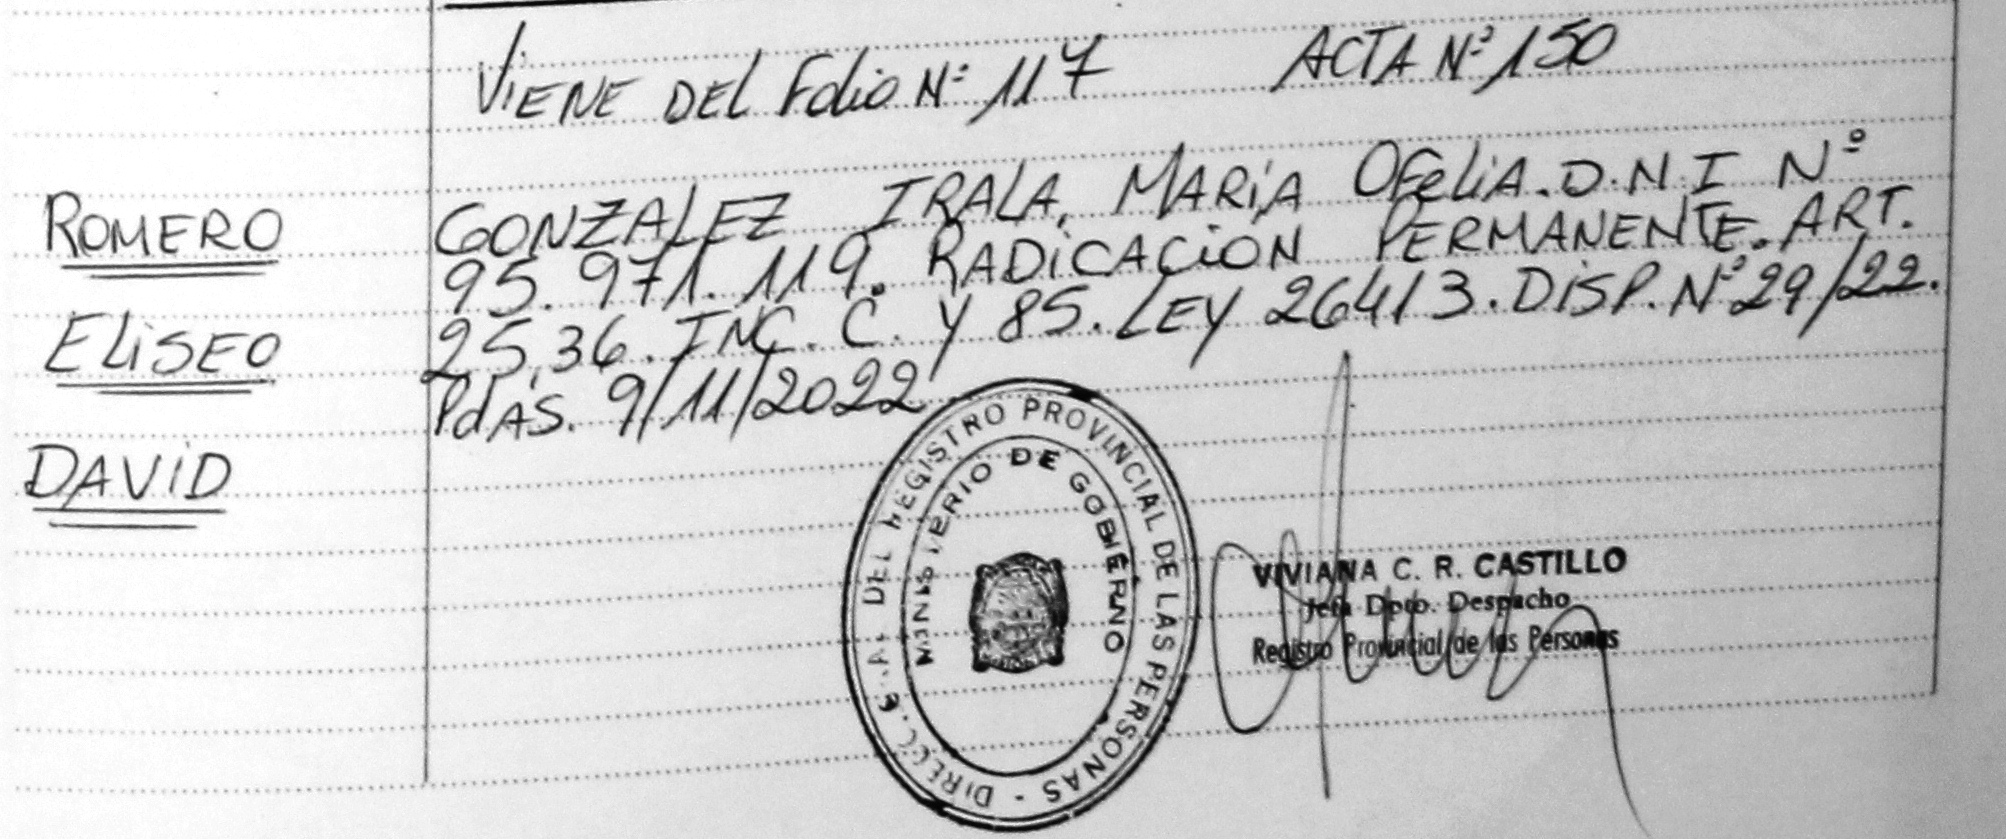 ViENE DEL Folio Nº 117 ACTA Nº 150
ROMERO
ELiSEO
DAViD
GONZALEZ IRALA, MARiA OFeLiA. D.N.I Nº
95.971.119. RADiCACiON PERMANENTE. ART.
25,36. INC. C. Y 85. LEY 26413. DiSP. Nº 29/22.
PdAS. 9/11/2022
DEL REGISTRO PROVINCIAL DE LAS PERSONAS - DIRECC.
MINISTERIO DE GOBIERNO
VIVIANA C. R. CASTILLO
Jefa Dpto. Despacho
Registro Provincial de las Personas